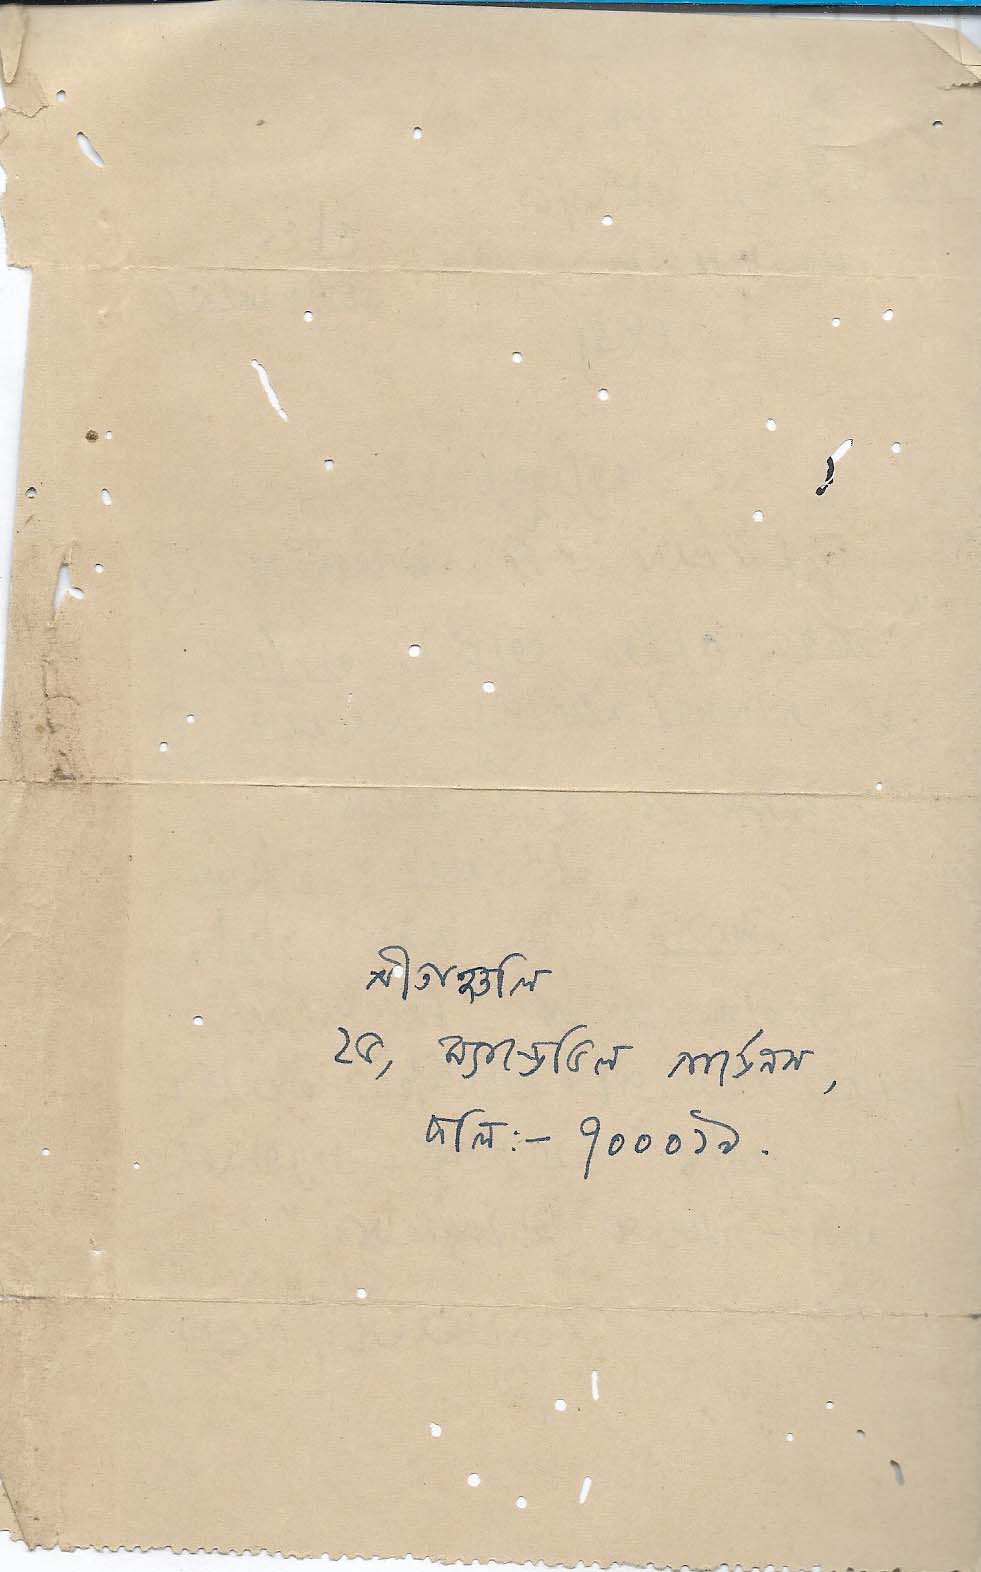 গীতাঞ্জলি
২৫, ম্যাণ্ডেভিল গার্ডেনস,
কলি:- ৭০০০১৯.